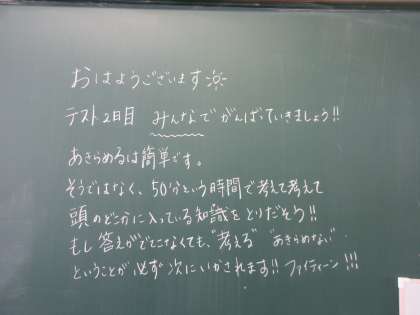 おはようございます☀
テスト2日目 みんなでがんばっていきましょう!!
あきらめるは簡単です。
そうではなく、50分という時間で考えて考えて
頭のどこかに入っている知識をとりだそう!!
もし答えがでてこなくても、"考える" "あきらめない"
ということが必ず次にいかされます!! ファイティーン!!!